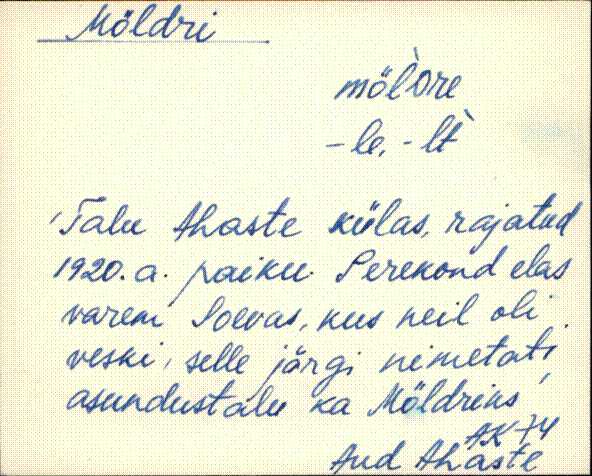 Möldri
möl`dre
-le, -lt`
Talu Ahaste külas, rajatud
1920. a. paiku. Perekond elas
varem Soevas, kus neil oli
veski, selle järgi nimetati
asundustalu ka Möldriks
AK 74
Aud Ahaste